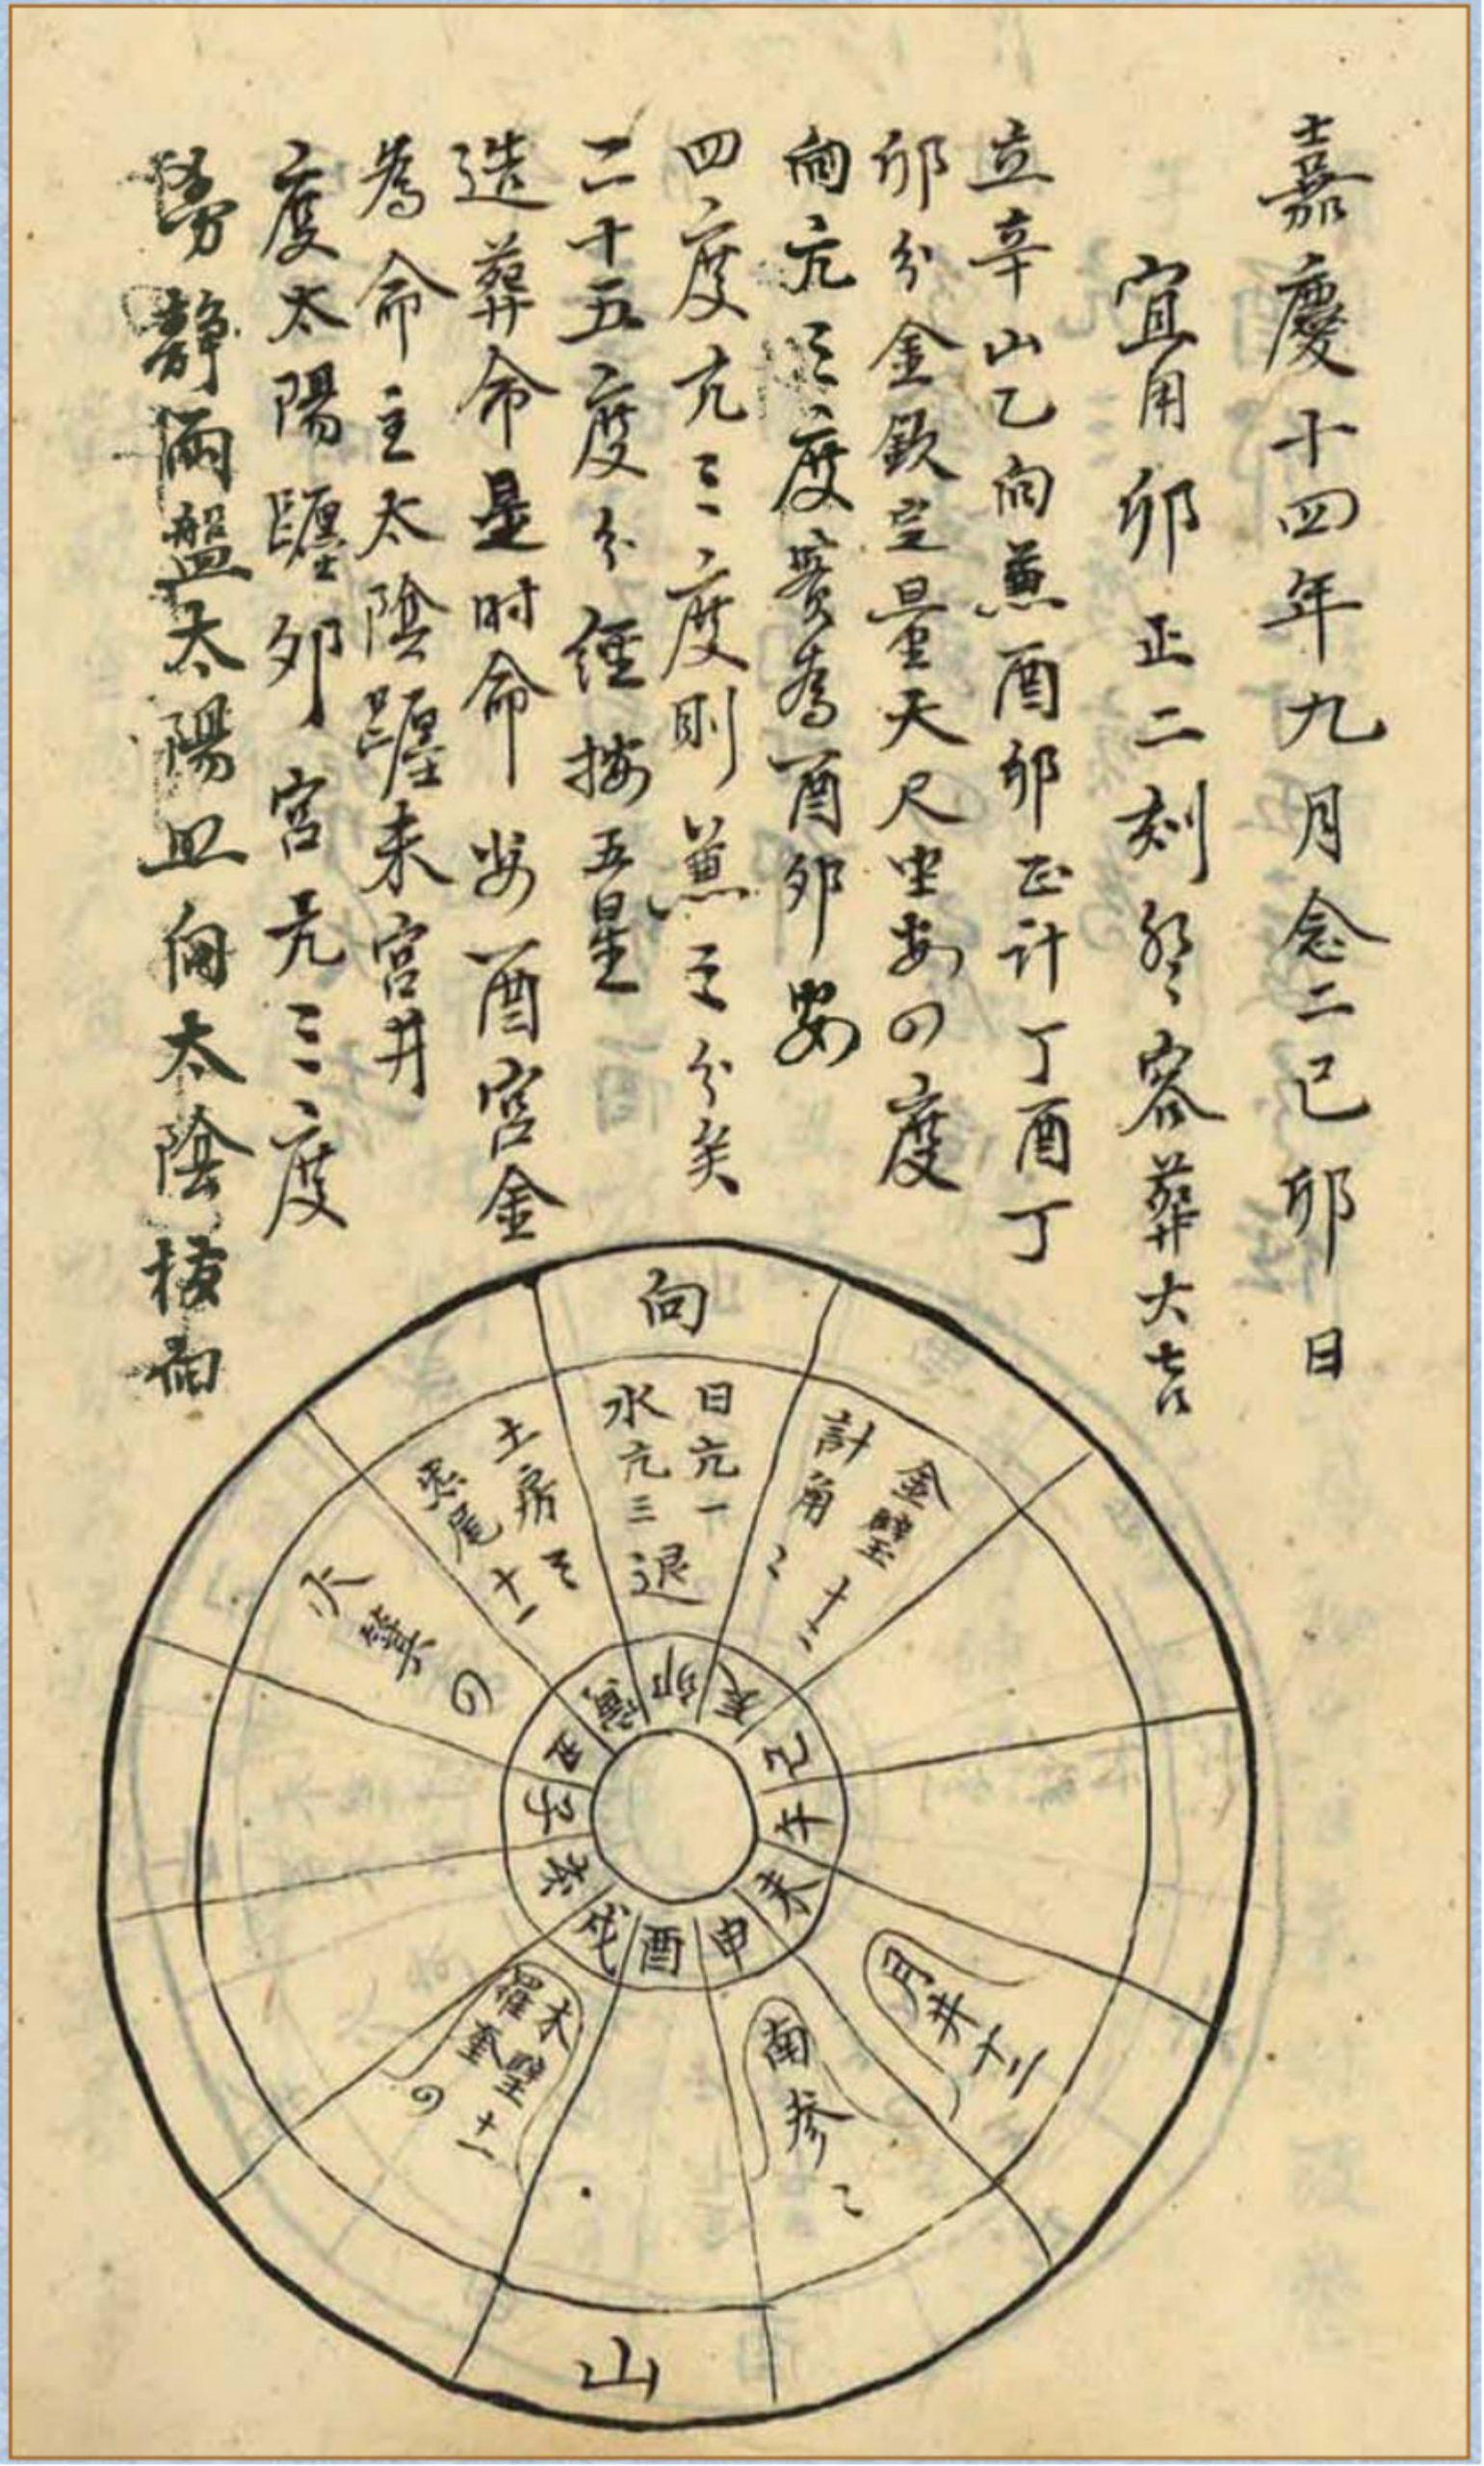 嘉慶十四年九月念二己卯日
宜用卯正二刻 容葬大吉
立辛山乙向兼酉卯正計丁酉丁
卯分金欽定量天尺坐婁四度
向亢三度 為酉卯婁
四度亢三度則兼三分矣
二十五度分經按五星
造葬命是时命 安酉宮金
為命主太陰躔未宮井
度太陽躔卯宮亢三度
靜兩盤太陽照向太陰
向
日亢一
水亢三退
計角二
金翼十三
土房三
炁尾十一
火箕四
月井十二
孛參二
木壁十一
羅奎四
山
卯
寅
丑
子
亥
戌
酉
申
未
午
巳
辰